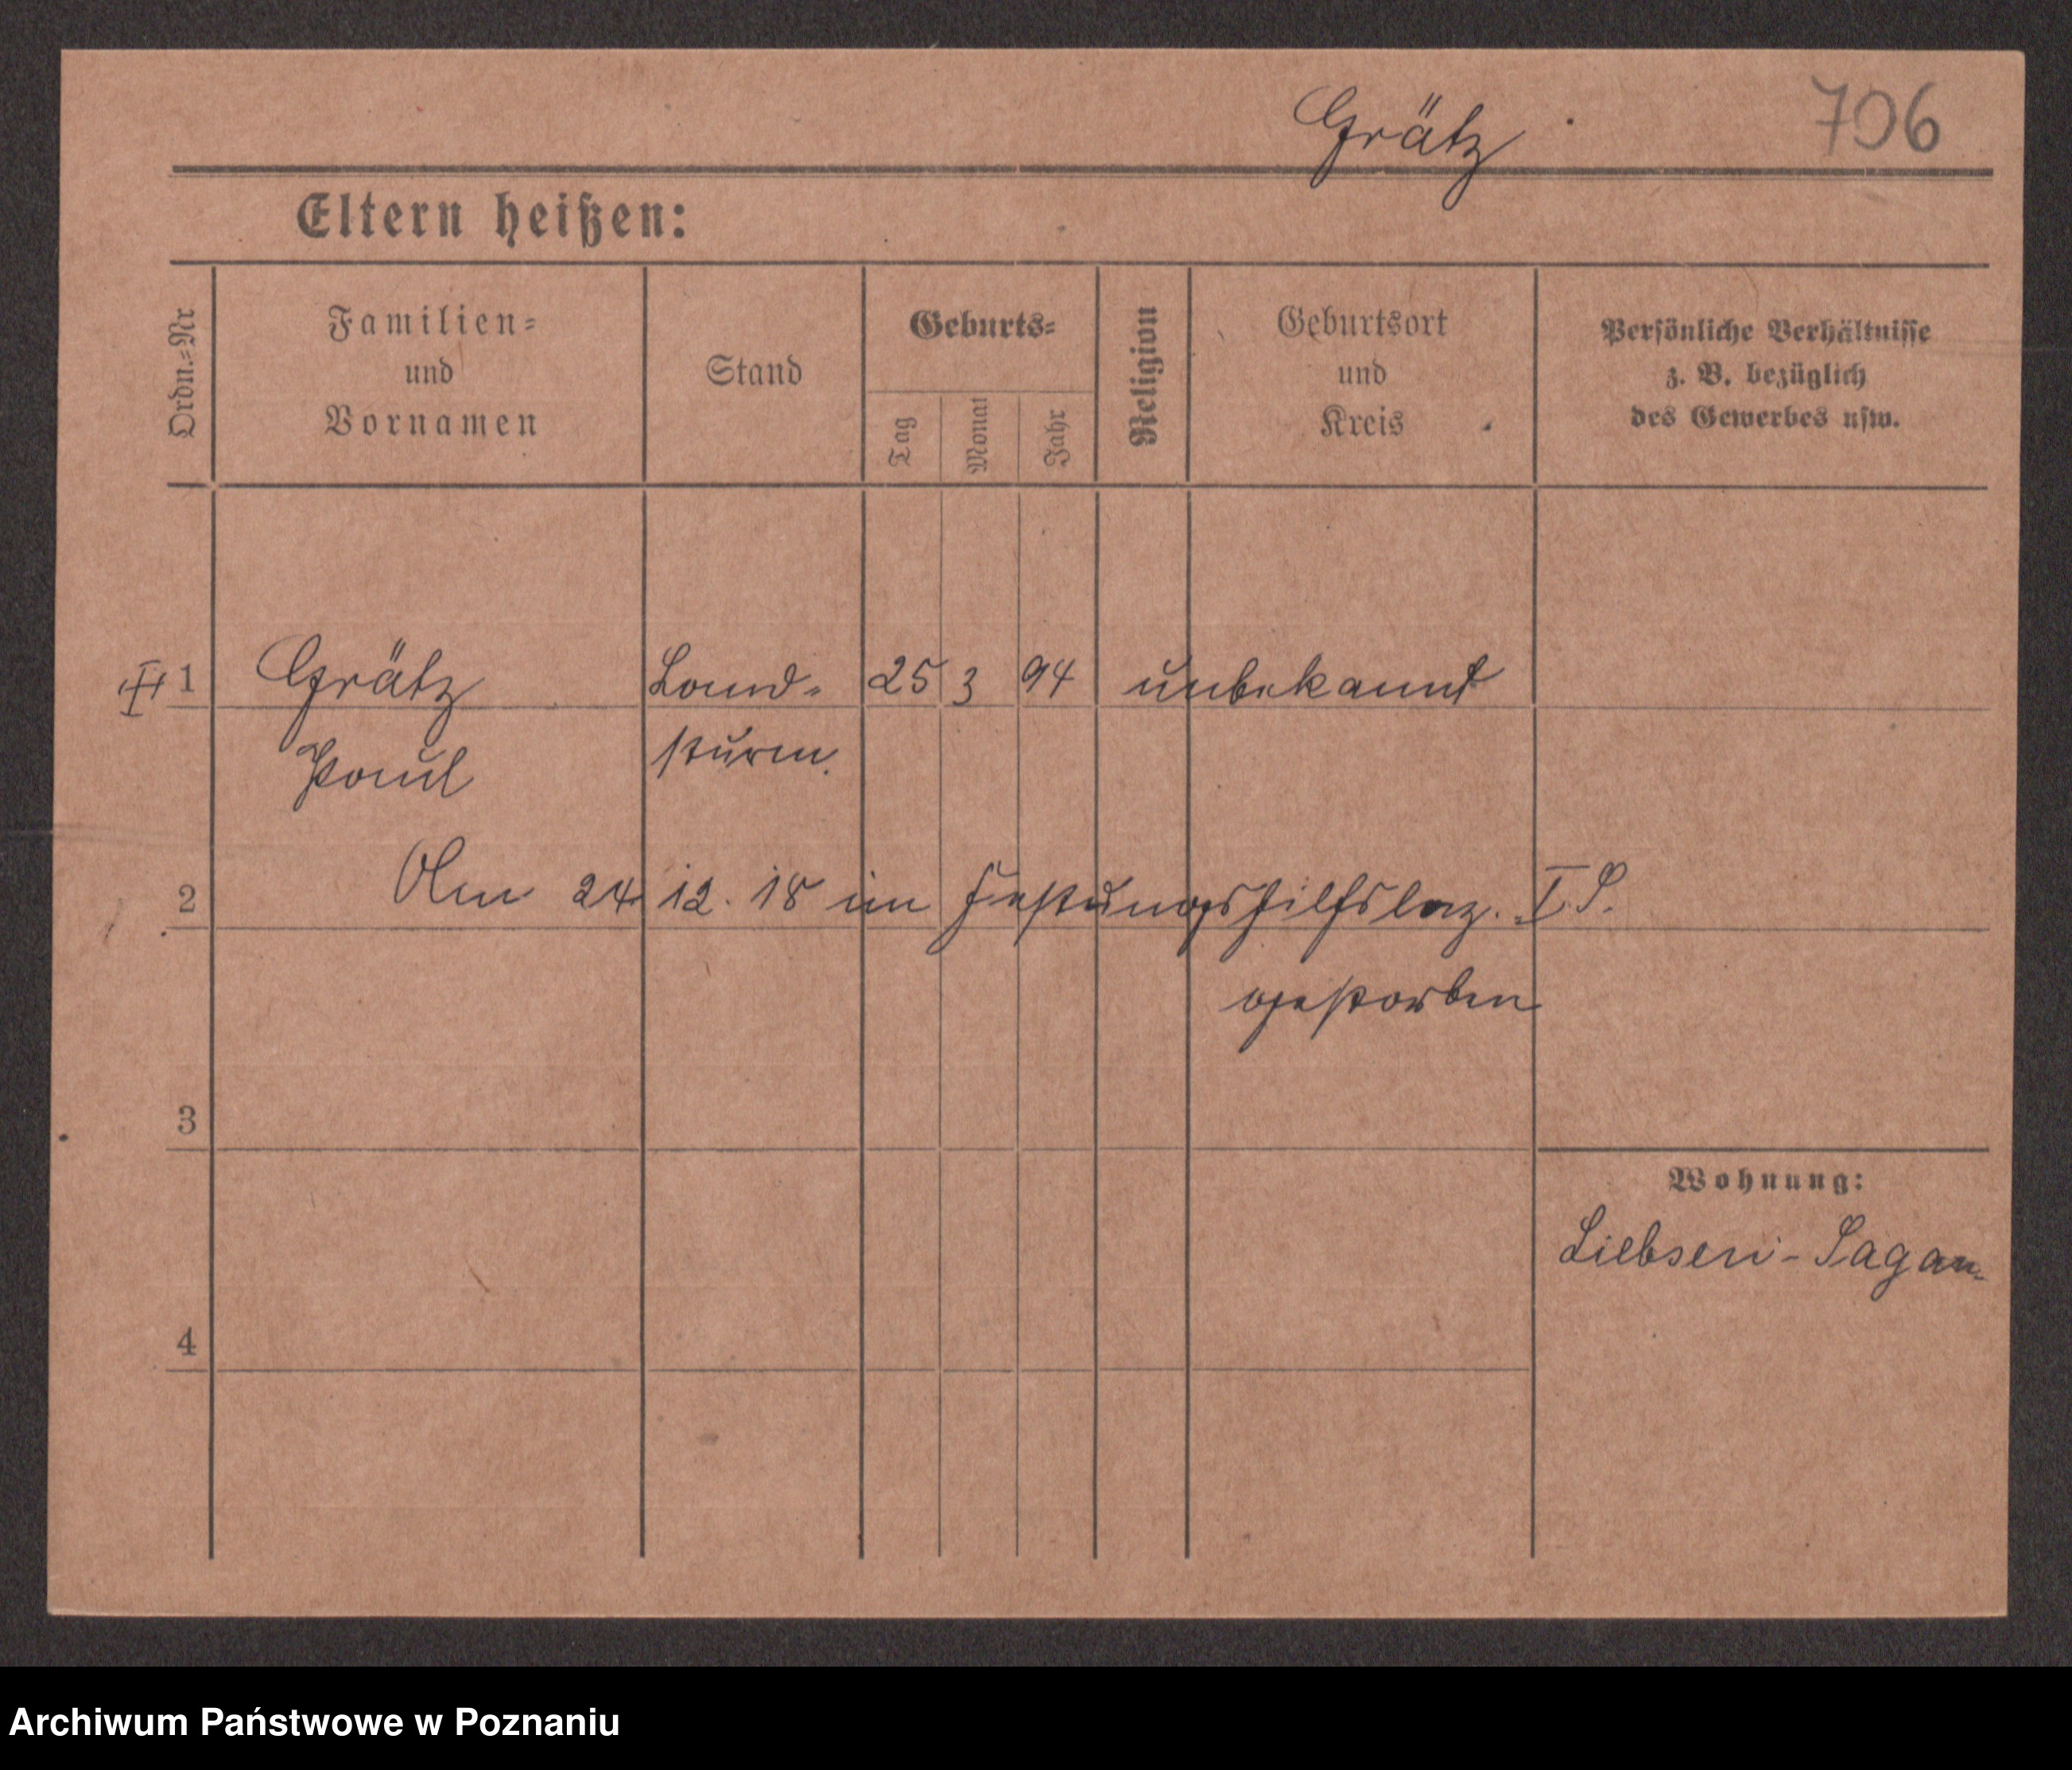 Grätz
706
Eltern heißen:
Ordn.=Nr
Familien=
und
Vornamen
Stand
Geburts=
Tag
Monat
Jahr
Religion
Geburtsort
und
Kreis
Persönliche Verhältnisse
z. B. bezüglich
des Gewerbes usw.
1 Grätz Land- 25 3 94 unbekannt
Paul sturm.
2 Am 24. 12. 18 im Festungshilfslaz. I. S.
gestorben
3
Wohnung:
Liebsen - Sagan
4
Archiwum Państwowe w Poznaniu